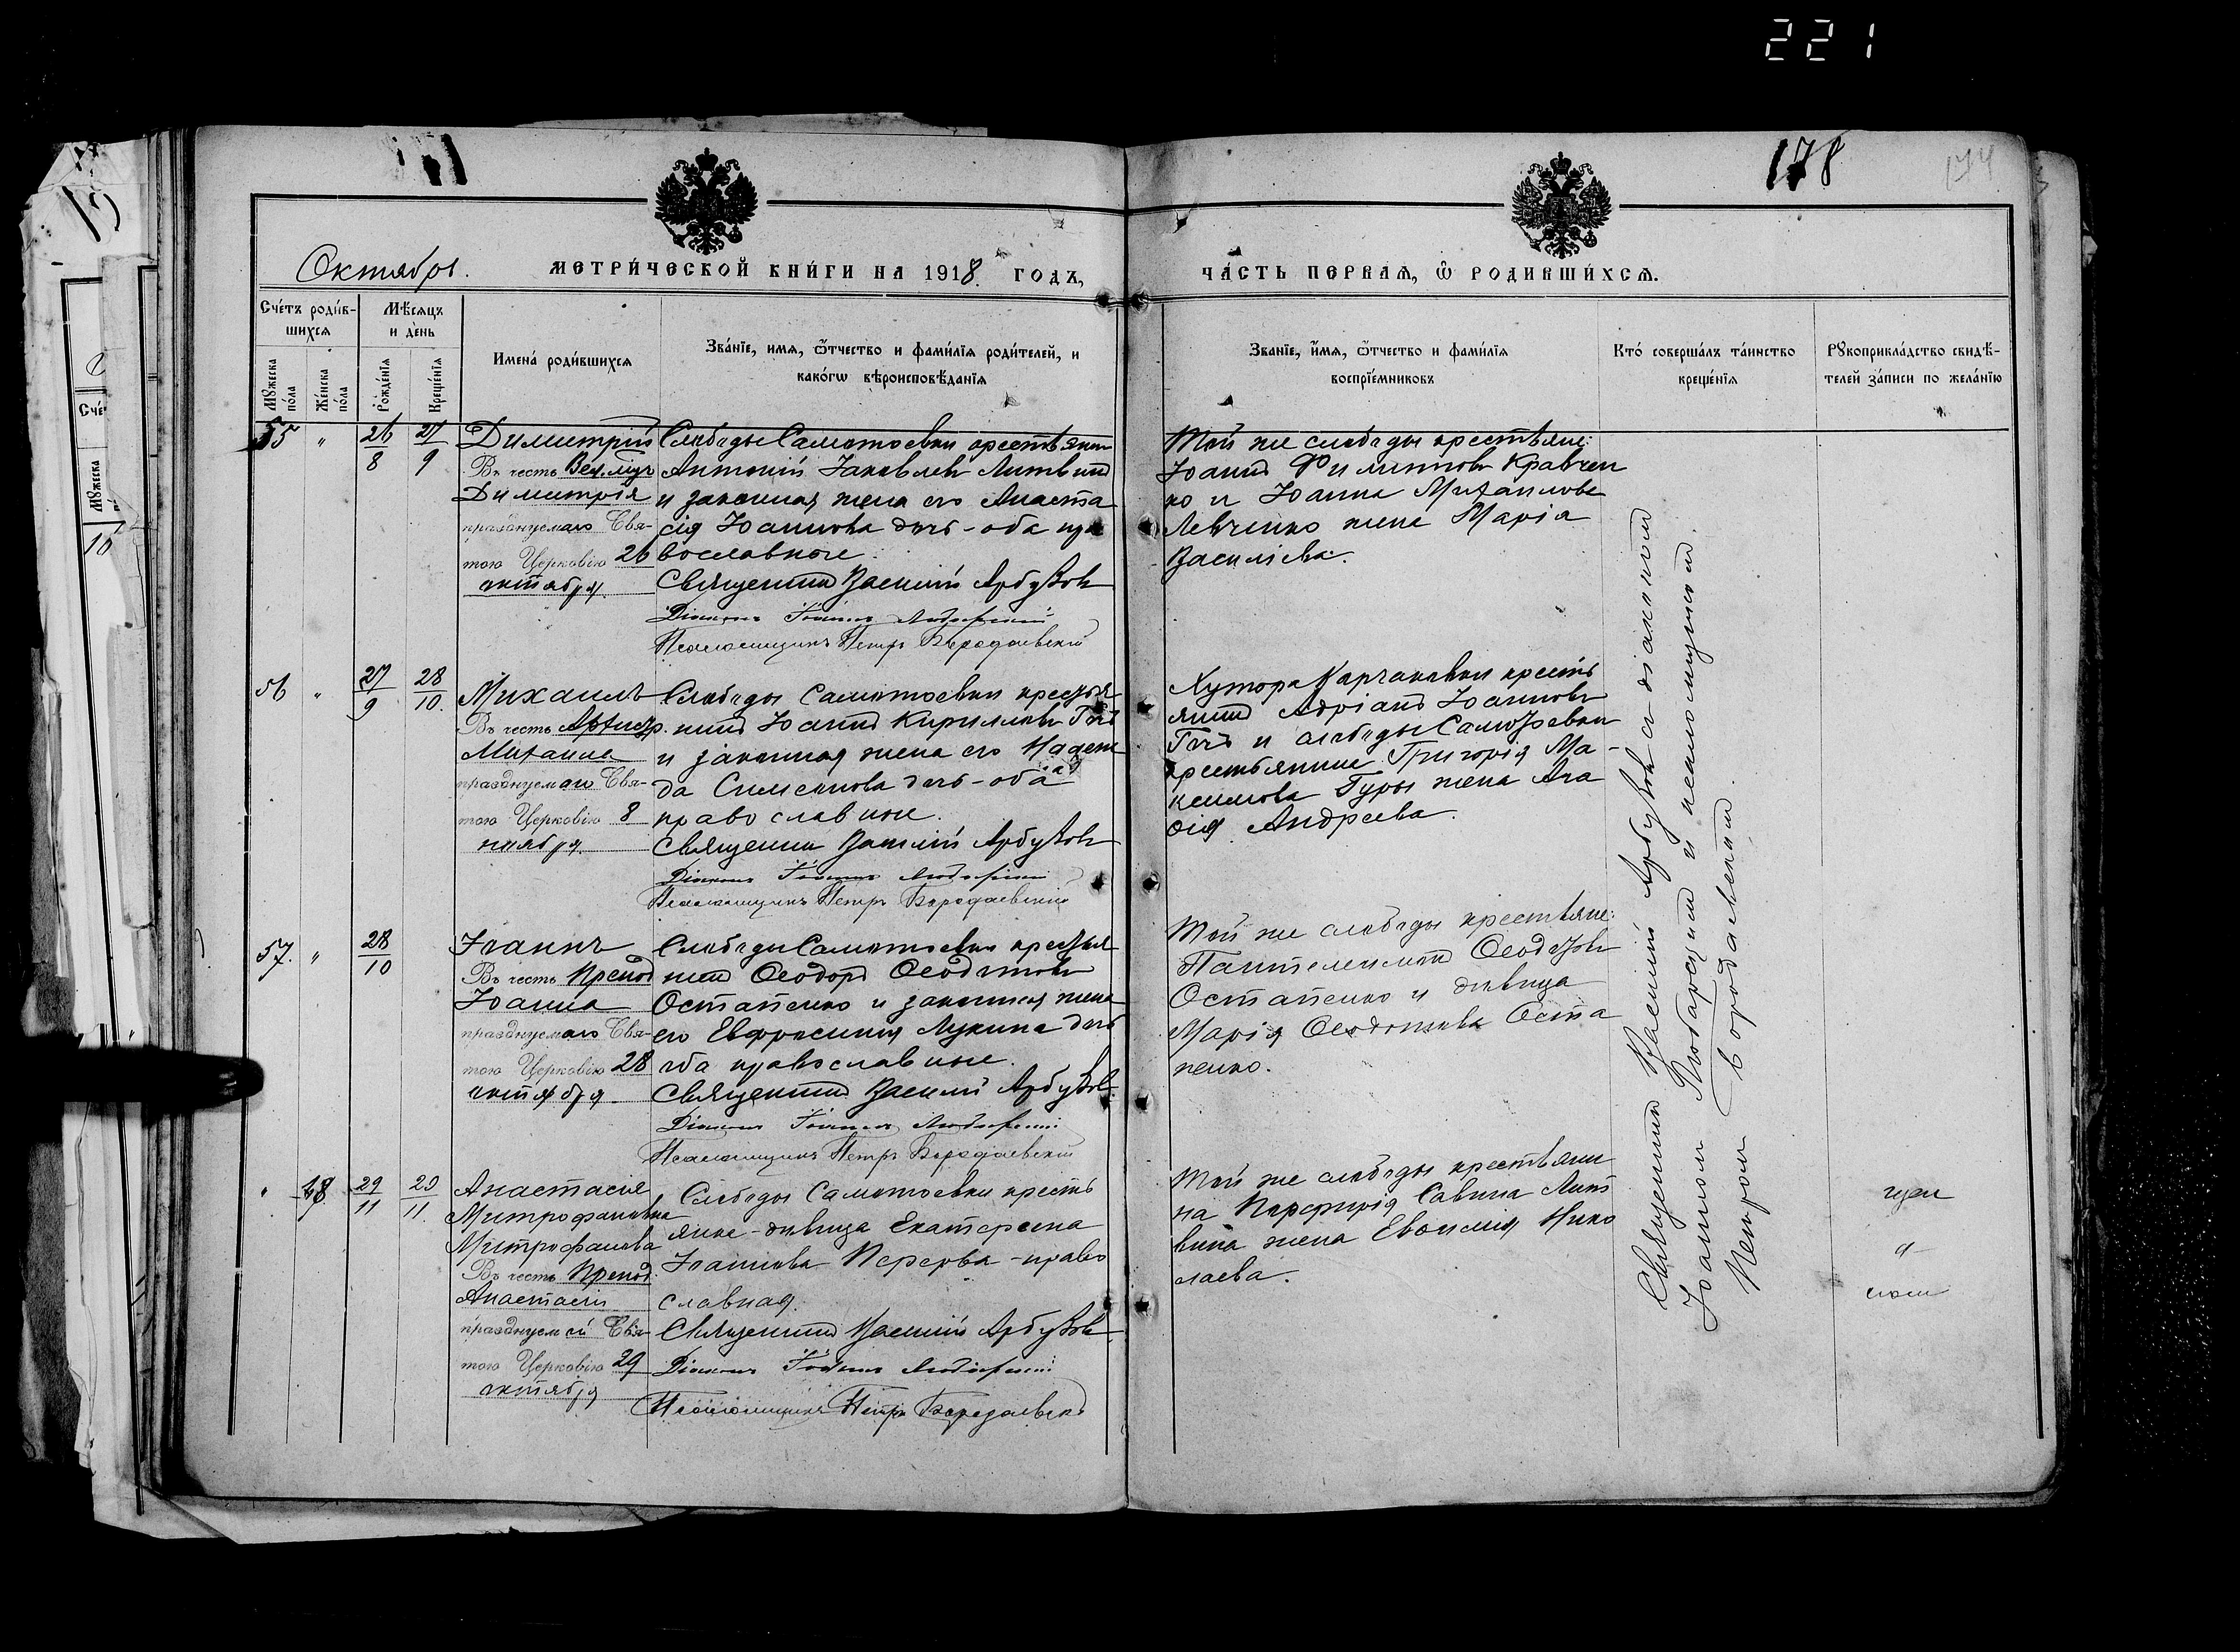 221
178
174
Октябрь.
МЕТРИ́ЧЕСКОЙ КНИ́ГИ НА 1918 ГОДЪ,
ЧА́СТЬ ПЕРВАЯ, Ѿ РОДИВШИ́ХСЯ.
Сче́тъ роди́в-
шихся
Мѣ́сяцъ
и де́нь
Мꙋжеска по́ла
Же́нска по́ла
Рожде́нїя
Креще́нїя
Имена́ роди́вшихся
Зва́нїе, имя, ѻ҆́тчество и фами́лїя роди́телей, и
како́гѡ вѣроисповѣ́данїя
Зва́нїе, и́мя, ѻ҆́тчество и фами́лїя
воспрїе́мниковъ
Кто́ соверша́лъ та́инство
креще́нїя
Рꙋкоприкла́дство свидѣ́-
телей за́писи по жела́нїю
55 " 26/8 27/9
Димитрій
Въ честь Вел. муч
Димитрія
празднуемаго Свя-
тою Церковію 26
октября.
Слободы Самотоевки крестьянин
Антоній Іаковлевъ Литвинъ
и законная жена его Анаста
сія Іоаннова дочь - оба пра
вославные.
Священникъ Василій Арбузовъ
Діаконъ Іоаннъ Любарскій
Псаломщикъ Петръ Бородаевскій
Той же слободы крестьяне:
Іоаннъ Филипповъ Кравчен
ко и Іоанна Михаилова
Левченко жена Марія
Василіева.
56 " 27/9 28/10.
Михаилъ
Въ честь Архистр.
Михаила
празднуемаго Свя-
тою Церковію 8
ноября.
Слободы Самотоевки крестья
нинъ Іоаннъ Кирилловъ
и законная жена его Надеж
да Симеонова дочь - оба
православные.
Священник Василій Арбузовъ
Діаконъ Іоаннъ Любарскій
Псаломщикъ Петръ Бородаевскій
Хутора Карчаковки кресть
янинъ Адріанъ Іоанновъ
и слободы Самотоевки
крестьянина Григорія Ма-
ксимова Гуры жена Ага
ѳія Андреева.
57. " 28/10
Іоаннъ
Въ честь Препод
Іоанна
празднуемаго Свя-
тою Церковію 28
октября
Слободы Самотоевки крестья
нин Ѳеодоръ Ѳеодотовъ
Остапенко и законная жена
его Евфросинія Лукина дочь
оба православные.
Священникъ Василій Арбузовъ.
Діаконъ Іоаннъ Любарскій
Псаломщикъ Петръ Бородаевскій
Той же слободы крестьяне:
Пантелеимонъ Ѳеодотовъ
Остапенко и дѣвица
Марія Ѳеодотова Оста
пенко.
" 48 29/11 29/11.
Анастасія
Митрофановна
Митрофанова
Въ честь Препод.
Анастасіи
празднуемой Свя-
тою Церковію 29
октября
Слободы Самотоевки кресть
янка - дѣвица Екатерина
Іоаннова Перерва - право
славная.
Священникъ Василій Арбузовъ
Діаконъ Іоаннъ Любарскій
Псаломщикъ Петръ Бородаевскій
Той же слободы крестьяни
на Порфирія Саввина Лит
вина жена Евѳимія Нико
лаева.
Священникъ Василій Арбузовъ съ діакономъ
Іоанномъ Любарскимъ и псаломщикомъ
Петромъ Бородаевскимъ.